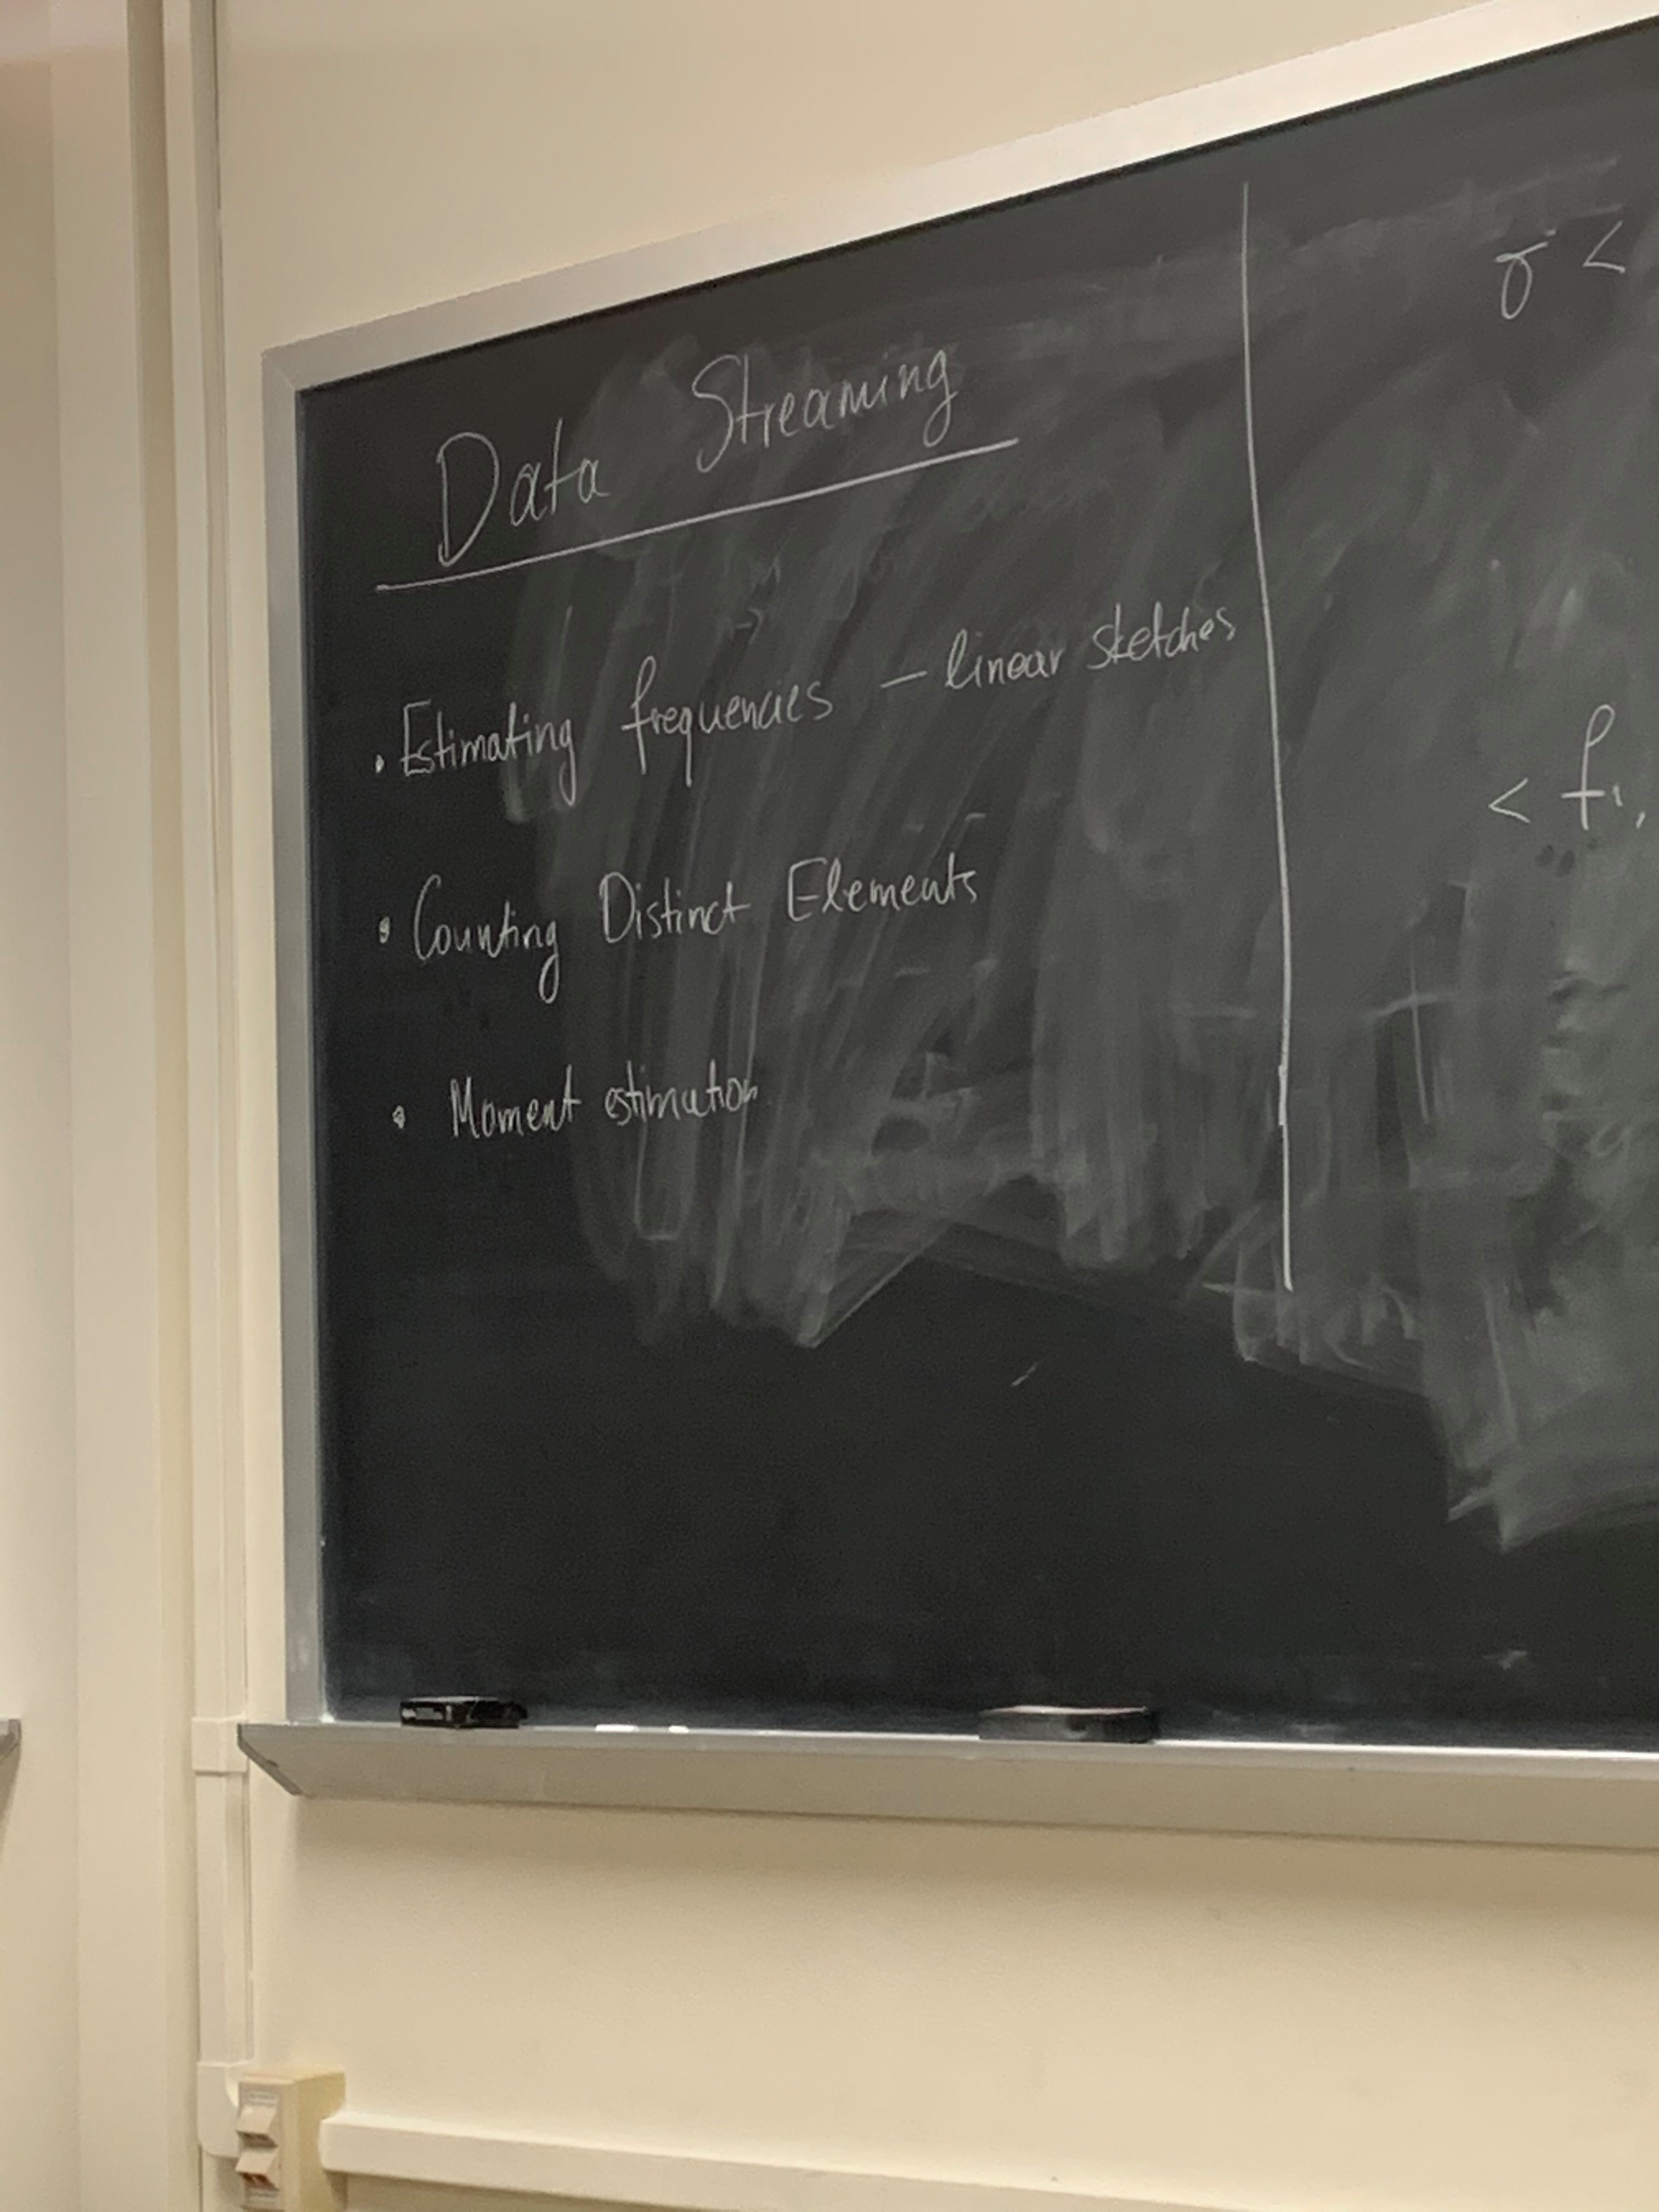 Data Streaming
• Estimating frequencies – linear sketches
• Counting Distinct Elements
• Moment estimation
σ <
< f1,